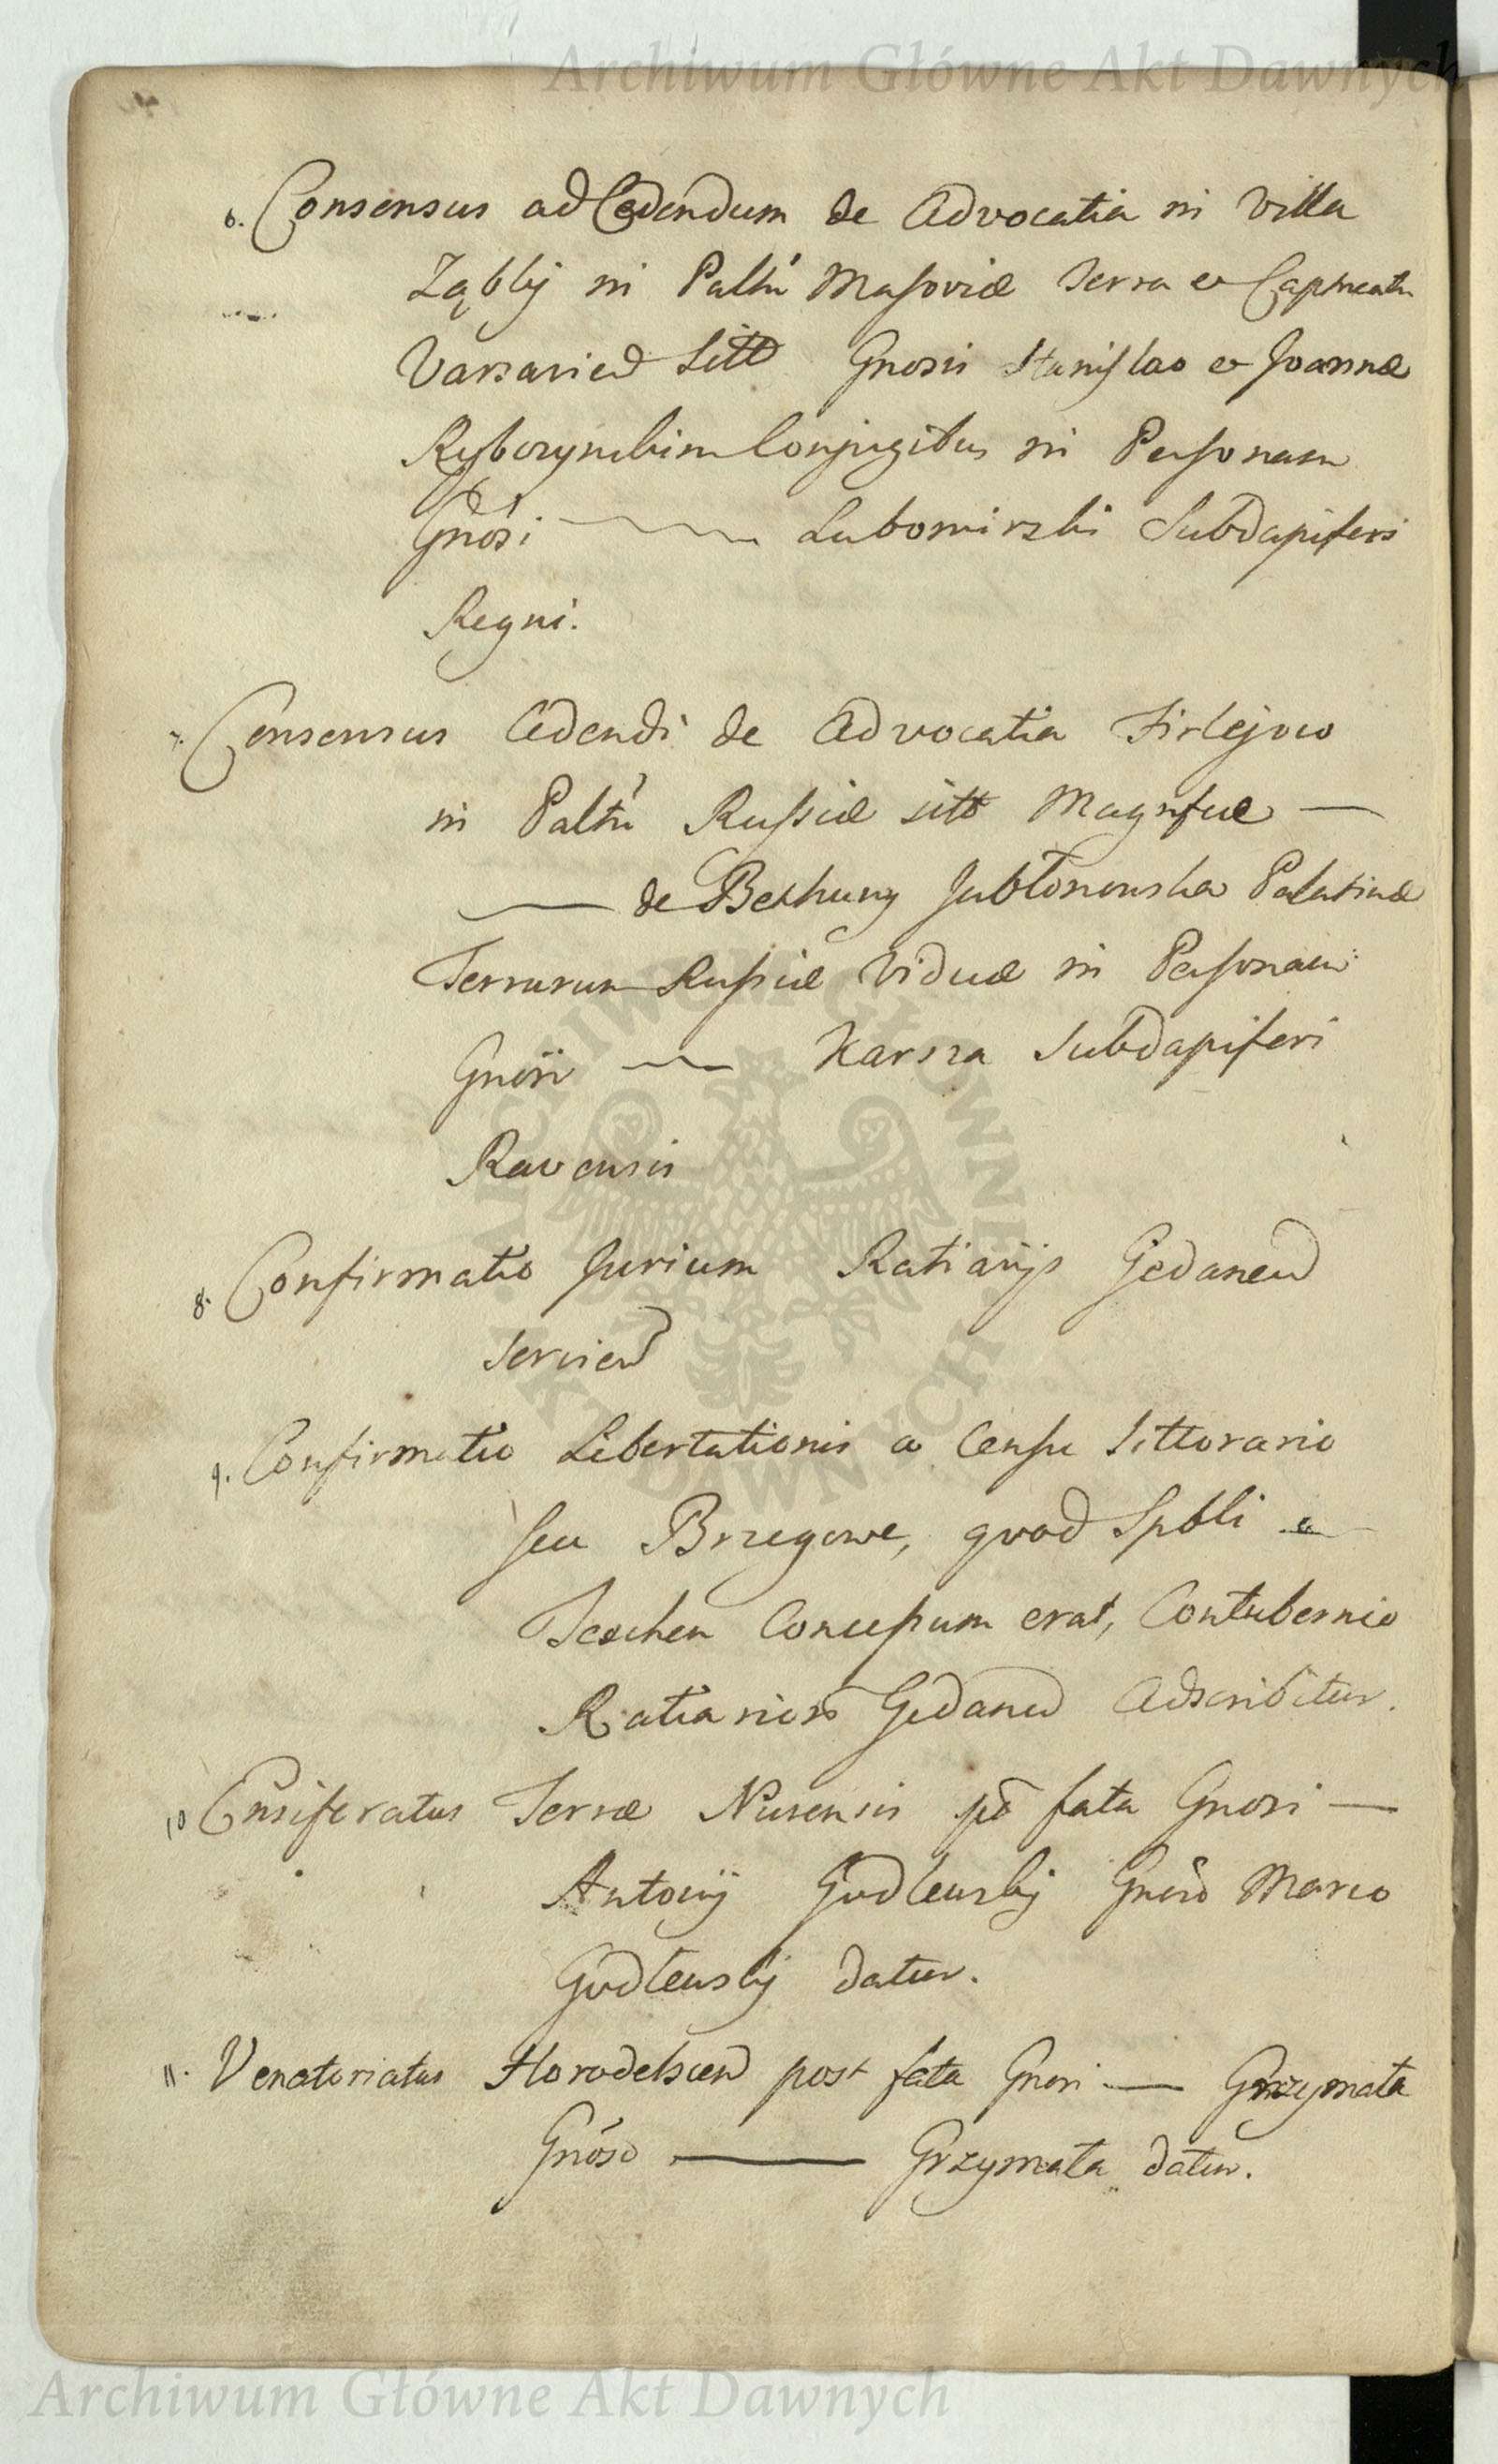 Archiwum Główne Akt Dawnych
6. Consensus ad Cedendum de Advocatia in Villa
Ząbky in Paltu Masoviæ Terra et Capneatu
Varsavien sitt Gnosis Stanislao et Joannæ
Rybczynskim Conjugibus in Personam
Gnosi — Lubomirski Subdapiferi
Regni.
7. Consensus Cedendi de Advocatia Firlejow
in Paltu Russiæ sitt Magnfcæ —
— de Bekhung Jabłonowska Palatinæ
Terrarum Russiæ Viduæ in Personam
Gnosi — Karsza Subdapiferi
Ravensis
8. Confirmatio Jurium Ratiarijs Gedanen
servien
9. Confirmatio Libertationis a Censu littorario
seu Brzegowe, quod Spbli a
Teschen Concessum erat, Contubernio
Ratiarior Gedanen Adscribitur.
10 Ensiferatus Terræ Nurensis po fata Gnosi —
Antonij Godlewskij Gnoso Marco
Godlewskij datur.
11. Venatoriatus Horodelscen post fata Gnosi — Grzymała
Gnoso — Grzymała datur.
ARCHIWUM GŁÓWNE
AKT DAWNYCH
Archiwum Główne Akt Dawnych